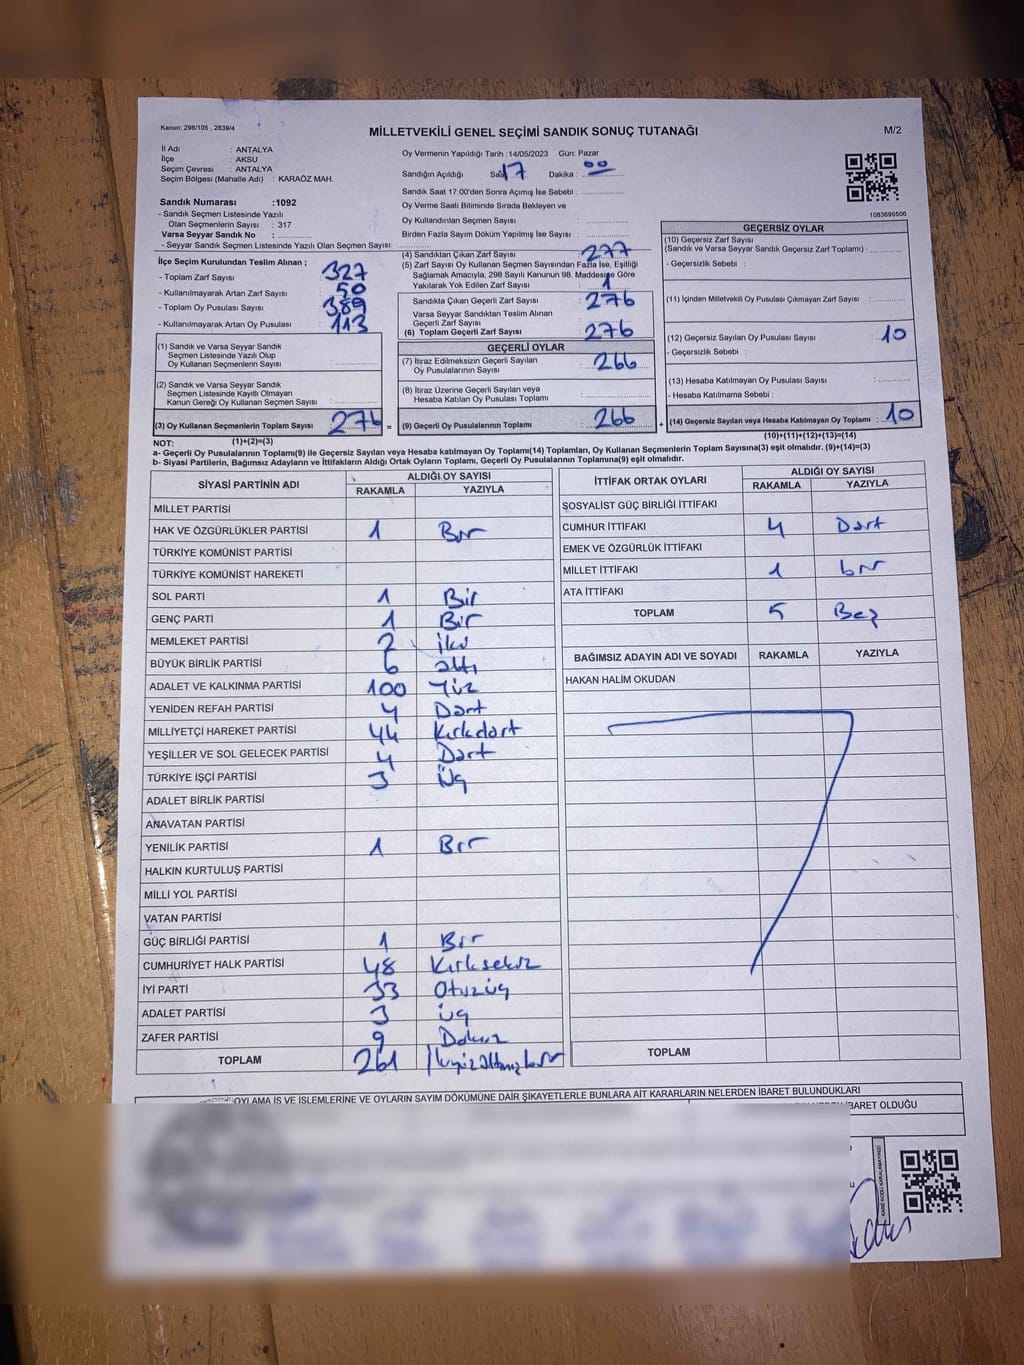 Kanun: 298/105 , 2839/4
MİLLETVEKİLİ GENEL SEÇİMİ SANDIK SONUÇ TUTANAĞI
M/2
İl Adı : ANTALYA
İlçe : AKSU
Seçim Çevresi : ANTALYA
Seçim Bölgesi (Mahalle Adı) : KARAÖZ MAH.
Oy Vermenin Yapıldığı Tarih :14/05/2023 Gün: Pazar
Sandığın Açıldığı Saat 17 Dakika : 00
Sandık Saat 17:00'den Sonra Açımış İse Sebebi :
Oy Verme Saati Bitiminde Sırada Bekleyen ve
Oy Kullandırılan Seçmen Sayısı :
Birden Fazla Sayım Döküm Yapılmış İse Sayısı :
1083699506
Sandık Numarası :1092
- Sandık Seçmen Listesinde Yazılı
Olan Seçmenlerin Sayısı : 317
Varsa Seyyar Sandık No :
- Seyyar Sandık Seçmen Listesinde Yazılı Olan Seçmen Sayısı:
İlçe Seçim Kurulundan Teslim Alınan ;
- Toplam Zarf Sayısı : 327
- Kullanılmayarak Artan Zarf Sayısı : 50
- Toplam Oy Pusulası Sayısı : 389
- Kullanılmayarak Artan Oy Pusulası : 113
(1) Sandık ve Varsa Seyyar Sandık
Seçmen Listesinde Yazılı Olup
Oy Kullanan Seçmenlerin Sayısı :
(2) Sandık ve Varsa Seyyar Sandık
Seçmen Listesinde Kayıtlı Olmayan
Kanun Gereği Oy Kullanan Seçmen Sayısı :
(3) Oy Kullanan Seçmenlerin Toplam Sayısı : 276 =
(1)+(2)=(3)
(4) Sandıktan Çıkan Zarf Sayısı : 277
(5) Zarf Sayısı Oy Kullanan Seçmen Sayısından Fazla İse, Eşitliği
Sağlamak Amacıyla, 298 Sayılı Kanunun 98. Maddesine Göre
Yakılarak Yok Edilen Zarf Sayısı : 1
Sandıkta Çıkan Geçerli Zarf Sayısı : 276
Varsa Seyyar Sandıktan Teslim Alınan
Geçerli Zarf Sayısı
(6) Toplam Geçerli Zarf Sayısı : 276
GEÇERLİ OYLAR
(7) İtiraz Edilmeksizin Geçerli Sayılan
Oy Pusulalarının Sayısı : 266
(8) İtiraz Üzerine Geçerli Sayılan veya
Hesaba Katılan Oy Pusulası Toplamı :
(9) Geçerli Oy Pusulalarının Toplamı : 266 +
GEÇERSİZ OYLAR
(10) Geçersiz Zarf Sayısı
(Sandık ve Varsa Seyyar Sandık Geçersiz Zarf Toplamı) :
- Geçersizlik Sebebi :
(11) İçinden Milletvekili Oy Pusulası Çıkmayan Zarf Sayısı :
(12) Geçersiz Sayılan Oy Pusulası Sayısı : 10
- Geçersizlik Sebebi :
(13) Hesaba Katılmayan Oy Pusulası Sayısı :
- Hesaba Katılmama Sebebi :
(14) Geçersiz Sayılan veya Hesaba Katılmayan Oy Toplamı : 10
(10)+(11)+(12)+(13)=(14)
NOT:
a- Geçerli Oy Pusulalarının Toplamı(9) ile Geçersiz Sayılan veya Hesaba katılmayan Oy Toplamı(14) Toplamları, Oy Kullanan Seçmenlerin Toplam Sayısına(3) eşit olmalıdır. (9)+(14)=(3)
b- Siyasi Partilerin, Bağımsız Adayların ve İttifakların Aldığı Ortak Oyların Toplamı, Geçerli Oy Pusulalarının Toplamına(9) eşit olmalıdır.
SİYASİ PARTİNİN ADI ALDIĞI OY SAYISI
RAKAMLA YAZIYLA
MİLLET PARTİSİ
HAK VE ÖZGÜRLÜKLER PARTİSİ 1 Bir
TÜRKİYE KOMÜNİST PARTİSİ
TÜRKİYE KOMÜNİST HAREKETİ
SOL PARTİ 1 Bir
GENÇ PARTİ 1 Bir
MEMLEKET PARTİSİ 2 iki
BÜYÜK BİRLİK PARTİSİ 6 altı
ADALET VE KALKINMA PARTİSİ 100 Yüz
YENİDEN REFAH PARTİSİ 4 Dört
MİLLİYETÇİ HAREKET PARTİSİ 44 Kırkdört
YEŞİLLER VE SOL GELECEK PARTİSİ 4 Dört
TÜRKİYE İŞÇİ PARTİSİ 3 Üç
ADALET BİRLİK PARTİSİ
ANAVATAN PARTİSİ
YENİLİK PARTİSİ 1 Bir
HALKIN KURTULUŞ PARTİSİ
MİLLİ YOL PARTİSİ
VATAN PARTİSİ
GÜÇ BİRLİĞİ PARTİSİ 1 Bir
CUMHURİYET HALK PARTİSİ 48 Kırksekiz
İYİ PARTİ 33 Otuzüç
ADALET PARTİSİ 3 üç
ZAFER PARTİSİ 9 Dokuz
TOPLAM 261 İkiyüzaltmışbir
İTTİFAK ORTAK OYLARI ALDIĞI OY SAYISI
RAKAMLA YAZIYLA
SOSYALİST GÜÇ BİRLİĞİ İTTİFAKI
CUMHUR İTTİFAKI 4 Dört
EMEK VE ÖZGÜRLÜK İTTİFAKI
MİLLET İTTİFAKI 1 bir
ATA İTTİFAKI
TOPLAM 5 Beş
BAĞIMSIZ ADAYIN ADI VE SOYADI RAKAMLA YAZIYLA
HAKAN HALİM OKUDAN
TOPLAM
OYLAMA İŞ VE İŞLEMLERİNE VE OYLARIN SAYIM DÖKÜMÜNE DAİR ŞİKAYETLERLE BUNLARA AİT KARARLARIN NELERDEN İBARET BULUNDUKLARI
İBARET OLDUĞU